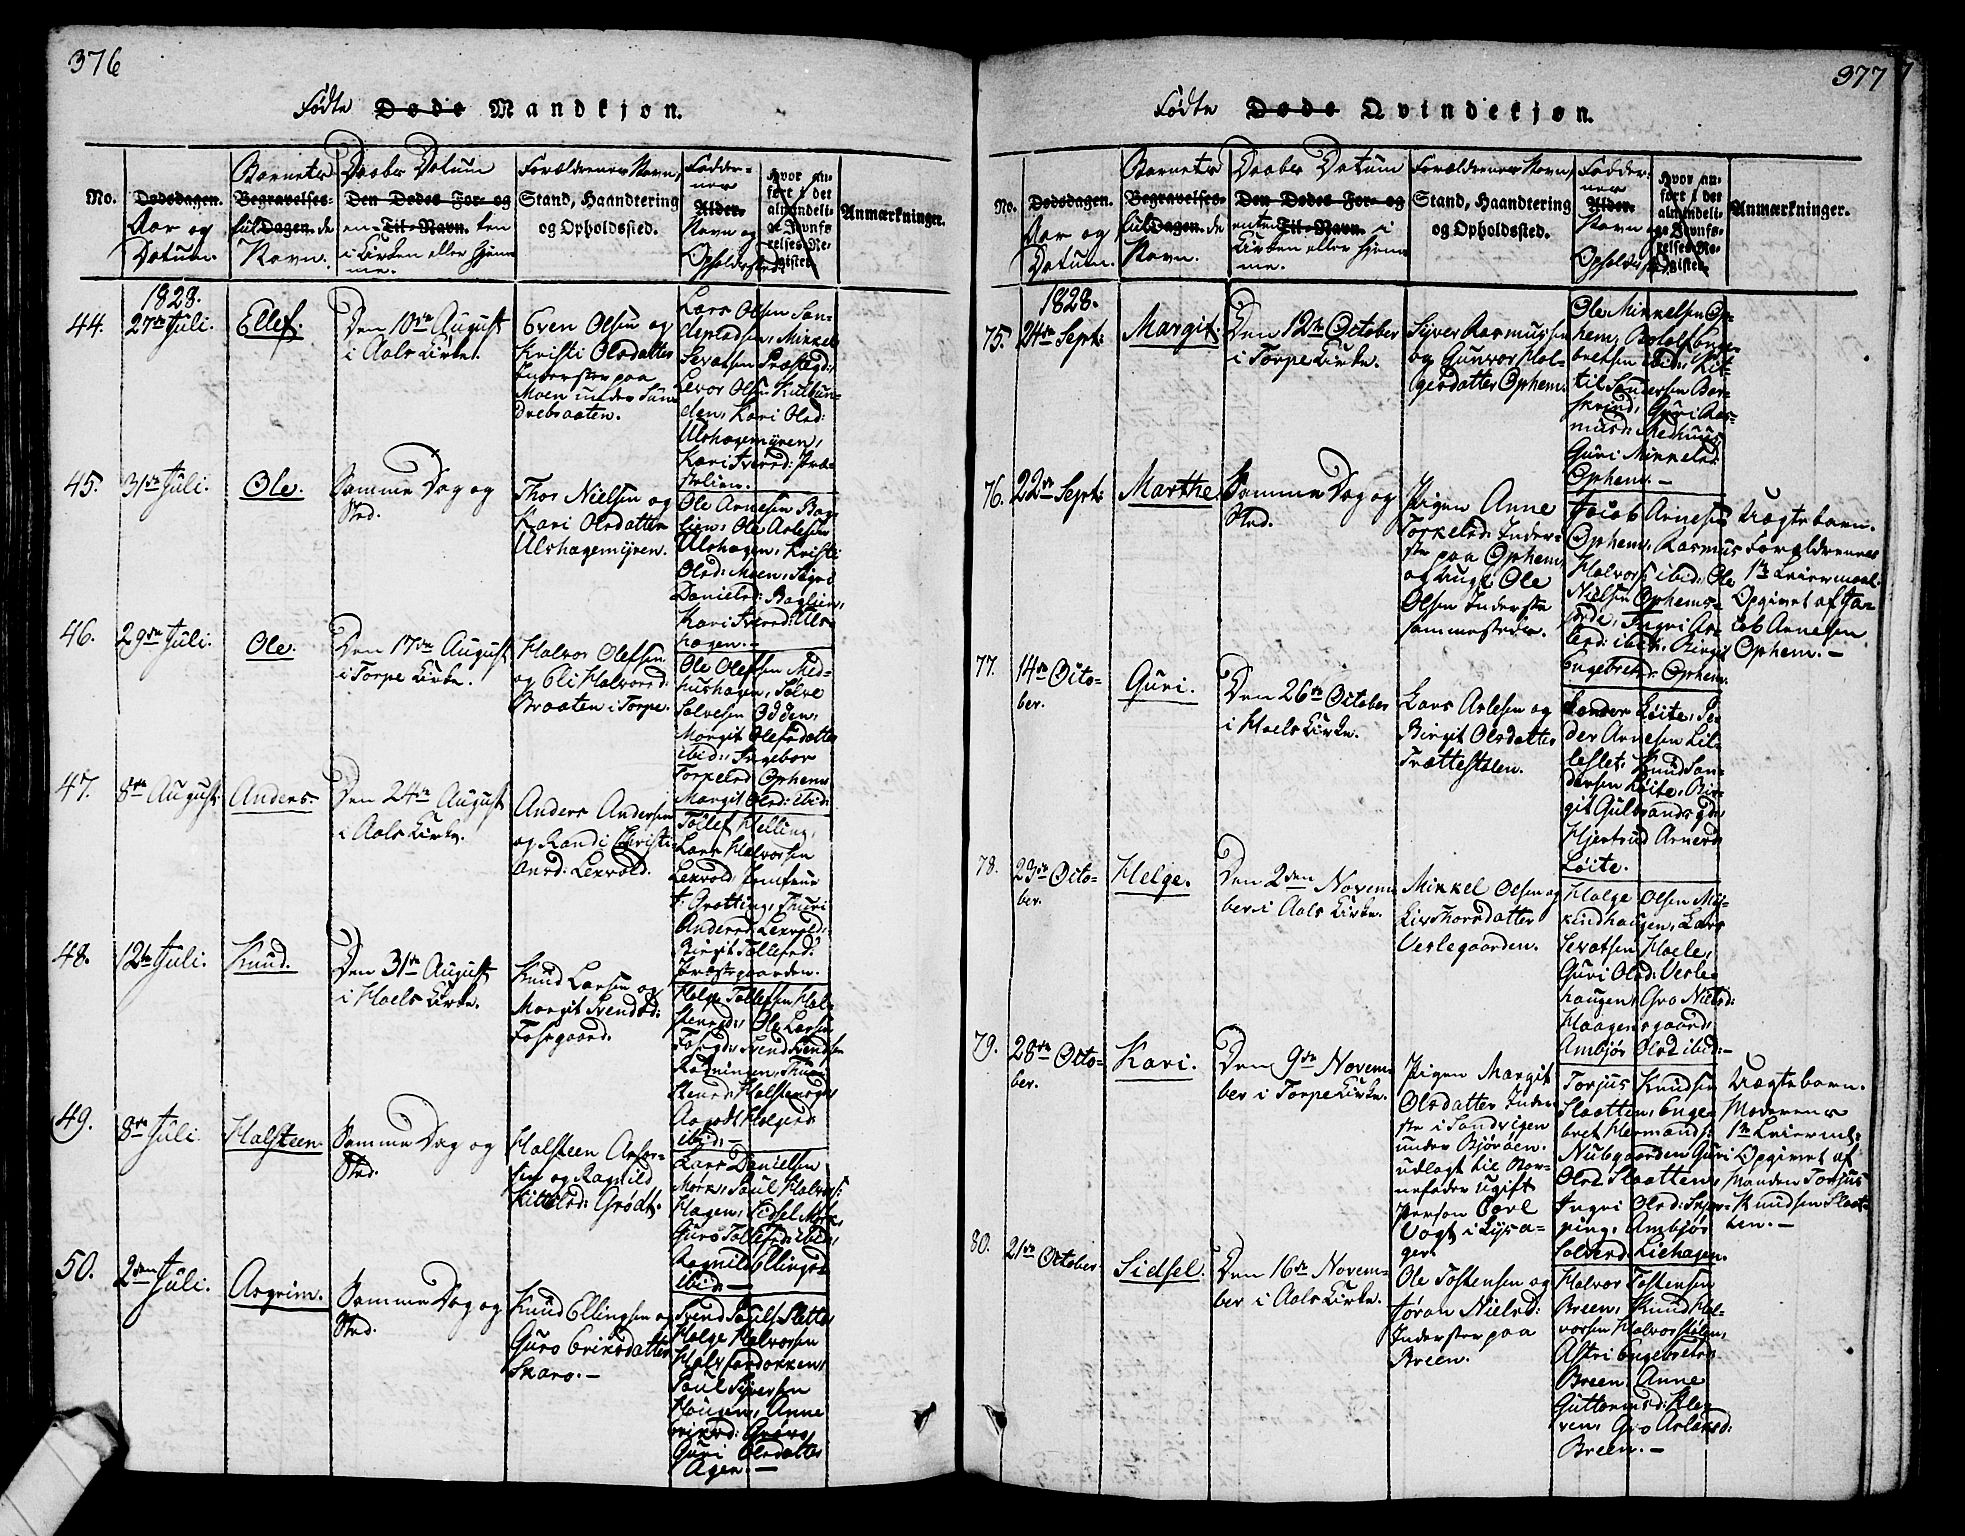 376
Fødte Døde Mandkjøn.
No.
Dødsdagen.
Aar og
Datum.
Barnets
Begravelses-
fulde Dagen.
Navn.
Daabs Datum
Den Dødes For- og
Til-Navn.
i Kirken eller Hjem-
me.
Forældrenes Navn,
Stand, Haandtering
og Opholdssted.
Fadder-
nes
Alder.
Navn og
Opholdssted
Hvor an-
ført i det
almindeli-
ge Jevnfø-
relses-Re-
gister.
Anmærkninger.
1828.
44.
27de Juli.
Ellef.
Den 10de August
i Aals Kirke.
Even Olsen og
Kristi Olsdatter
Inderster paa
Moen under Sun-
drebraaten.
Lars Olsen Sun-
Levor Olsen
Kari Olsd:
Ulshagemyren,
45.
31te Juli.
Ole.
Samme Dag og
Sted.
Thor Nielsen og
Kari Olsdatter
Ulshagemyren.
Ole Arnesen Bag-
lien, Ole Aslesen
Ulshagen, Kristi
Olsd: Moen, Sigri
Danielsd: Baglien,
Kari Iversd: Uls-
hagen.
46.
29de Juli.
Ole.
Den 17de August
i Torpe Kirke.
Halvor Olefsen
og Eli Halvorsd:
Braaten i Torpe.
Ole Olefsen Med-
hushagen, Sølve
Sølvesen Odden,
Margit Olefsdatter
ibid: Ingebor
Torkelsd: Ophem,
Margit Olsd: ibid:
47.
8de August.
Anders.
Den 24de August
i Aals Kirke.
Anders Andersen
og Randi Christi-
ansd: Lexvold.
Tollef Helling,
Lars Halvorsen
Lexvold,
Grøtting, Thuri
Andersd: Lexvold:
Birgit Tollefsd:
Præstegaarden.
48.
12te Juli.
Knud.
Den 31te August
i Hoels Kirke.
Knud Larsen og
Margit Svendsd:
Fosgaard.
Helge Tollefsen Hal-
Ole Larsen
Svend Svendsen
49.
8de Juli.
Halsteen.
Samme Dag og
Sted.
Halsteen Asser-
sen og Ragnild
Kittelsd: Grødt.
Lars Danielsen
Mørk, Paul Halvors:
Hagen, Sidsel Mørk,
Guro Tollefsd: ibid:
Ragnild Ellingsd
ibid: —
50.
2den Juli.
Asgrim.
Samme Dag og
Sted.
Knud Ellingsen og
Guro Eriksdatter
Skaro. —
Helge Halvorsen
Paul Syversen
Haugen, Anne
Guri Olsdatter
Agen. —
377
Fødte Døde Qvindekjøn.
No.
Dødsdagen.
Aar og
Datum.
Barnets
Begravelses-
fulde Dagen.
Navn.
Daabs Datum
Den Dødes For- og
Til-Navn. i
Kirken eller Hjem-
me.
Forældrenes Navn,
Stand, Haandtering
og Opholdssted.
Fadder-
nes
Alder.
Navn og
Opholdssted
Hvor an-
ført i det
almindeli-
ge Jevnfø-
relses-Re-
gister.
Anmærkninger.
1828.
75.
24de Sept:
Margit.
Den 12te October
i Torpe Kirke.
Syver Rasmussen
og Gunvor Hol-
gersdatter Ophem.
Ole Mikkelsen Op-
hem,
Guri Ras-
musd: Medhuus,
Guri Mikkelsd:
Ophem. —
76.
22de Sept:
Marthe.
Samme Dag og
Sted.
Pigen Anne
Torkelsd: Inder-
ste paa Ophem,
og Ungk: Ole
Olsen Inderste
sammesteder.
Jacob Arnesen
Ophem, Rasmus
Halvors: ibid: Ole
Nielsen Ophems-
jorde, Ingri Ar-
nesd: ibid: Birgit
Engebretsd: Ophem.
Uægte barn.
Forældrenes
1te Leiermaal.
Opgivet af Ja-
cob Arnesen
Ophem. —
77.
14de Octo-
ber.
Guri.
Den 26de October
i Hoels Kirke.
Lars Aslesen og
Birgit Olsdatter
Trættestølen.
Sander Løite, Pe-
der Arnesen Lil-
leslet, Knud San-
dersen Løite, Bir-
git Gulbrandsgd.
Hjertrud Arnesd:
Løite.
78.
23de Octo-
ber.
Helge.
Den 2den Novem-
ber i Aals Kirke.
Mikkel Olsen og
Liv Thorsdatter
Veslegaarden.
Helge Olsen
Lars
Sevatsen Hoele,
Guri Olsd: Vesle-
haugen, Gro Nielsd:
Haagensgaard,
Ambjør Olsd: ibid: —
79.
28de Octo-
ber.
Kari.
Den 9de Novem-
ber i Torpe Kirke.
Pigen Margit
Olsdatter Inder-
ste i Sandvigen
under Bjøröen.
udlagt til Bar-
nefader ugift
Person Carl
Vogt i Lysa-
ger.
Torjus Knudsen
Slaatten, Enge-
bret Hermands:
Nubgaarden, Guri
Olsd: Slaatten,
Ingri Olsd:
Ambjør
Solversd: Liehagen.
Uægte barn.
Moderens
1te Leierml:
Opgivet af
Manden Torjus
Knudsen Slaat-
ten. —
80.
21de October
Sidsel.
Den 16de Novem-
ber i Aals Kirke.
Ole Tostensen og
Jøran Nielsd:
Inderster paa
Breen.
Halvor Tostensen
Breen, Knud Hal-
vorsen
Astri Engebretsd:
Breen, Anne
Guttormsd: Klev-
ven, Gro Aslaksd:
Breen. —